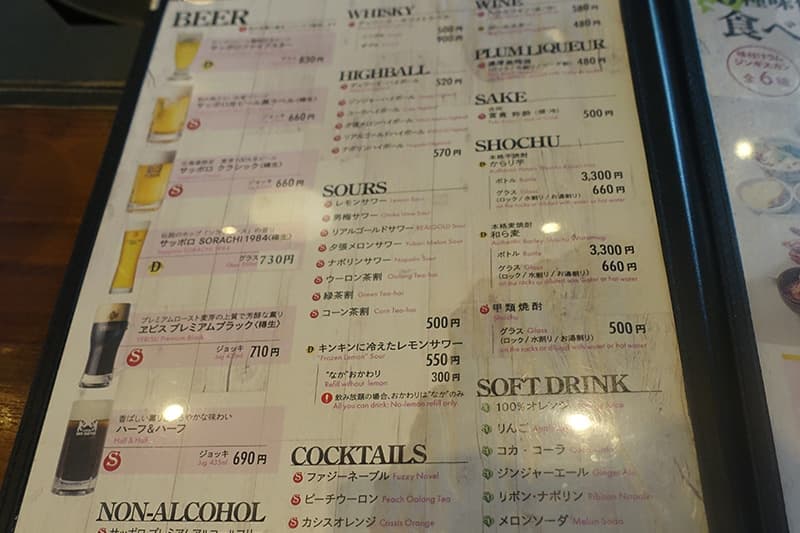 BEER
サッポロファイブスター
グラス 830円
サッポロ生ビール黒ラベル〈樽生〉
660円
サッポロ クラシック〈樽生〉
660円
サッポロ SORACHI 1984〈樽生〉
グラス 730円
プレミアムロースト麦芽の上質で芳醇な薫り
ヱビス プレミアムブラック〈樽生〉
YEBISU Premium Black
ジョッキ 710円
香ばしい薫り
やかな味わい
ハーフ&ハーフ
Half & Half
ジョッキ 690円
Jug 435ml
NON-ALCOHOL
サッポロ プレミアムアルコールフリー
WHISKY
500円
900円
HIGHBALL
520円
ジンジャーハイボール
コークハイボール
夕張メロンハイボール
リアルゴールドハイボール
ナポリンハイボール
570円
SOURS
レモンサワー Lemon Sour
男梅サワー Otoko Ume Sour
リアルゴールドサワー REALGOLD Sour
夕張メロンサワー Yubari Melon Sour
ナポリンサワー Napolin Sour
ウーロン茶割 Oolong Tea-hai
緑茶割 Green Tea-hai
コーン茶割 Corn Tea-hai
500円
キンキンに冷えたレモンサワー
"Frozen Lemon" Sour 550円
"なか"おかわり 300円
Refill without lemon
飲み放題の場合、おかわりは"なか"のみ
All you can drink: No-lemon refill only
COCKTAILS
ファジーネーブル Fuzzy Navel
ピーチウーロン Peach Oolong Tea
カシスオレンジ Cassis Orange
WINE
580円
480円
PLUM LIQUEUR
480円
SAKE
500円
SHOCHU
本格芋焼酎
からり芋
ボトル Bottle 3,300円
グラス Glass 660円
(ロック/水割り/お湯割り)
on the rocks or diluted with water or hot water
本格麦焼酎
和ら麦
ボトル Bottle 3,300円
グラス Glass 660円
(ロック/水割り/お湯割り)
on the rocks or diluted with water or hot water
甲類焼酎
Shochu
グラス Glass 500円
(ロック/水割り/お湯割り)
on the rocks or diluted with water or hot water
SOFT DRINK
100% オレンジ
りんご
コカ・コーラ
ジンジャーエール Ginger Ale
リボン・ナポリン Ribbon Napolin
メロンソーダ Melon Soda
食べ
味付けラム
ジンギスカン
全6種